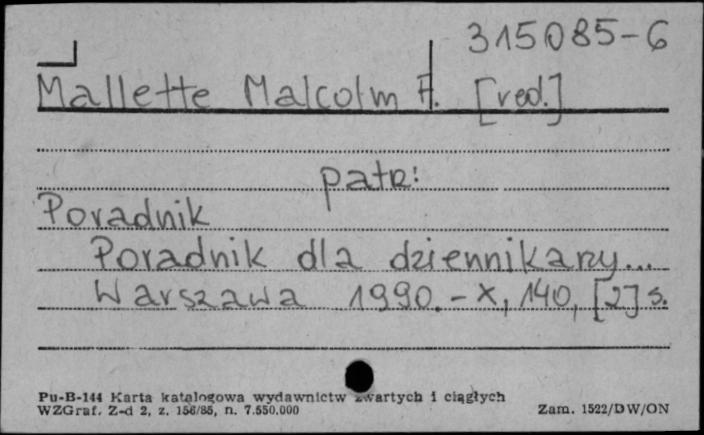 315085-6
Mallette Malcolm F. [red.]
patrz:
Poradnik
Poradnik dla dziennikarzy...
Warszawa 1990.-X, 140, [2] s.
Pu-B-144 Karta katalogowa wydawnictw zwartych i ciągłych
WZGraf. Z-d 2, z. 156/85, n. 7.550.000
Zam. 1522/DW/ON